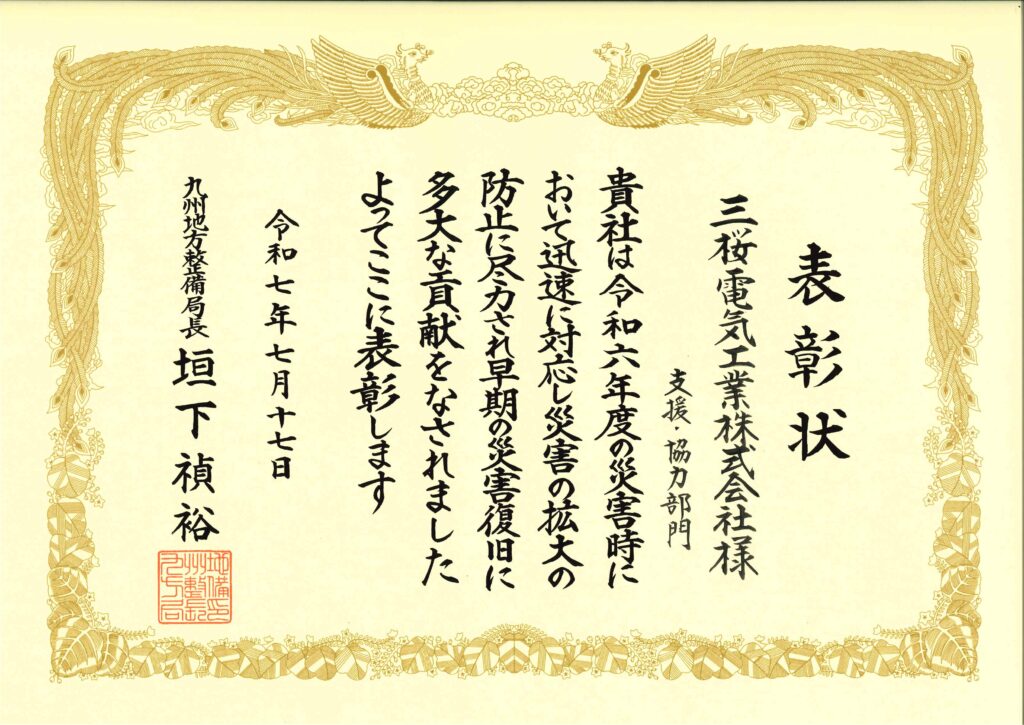 表彰状
三桜電気工業株式会社様
支援・協力部門
貴社は令和六年度の災害時に
おいて迅速に対応し災害の拡大の
防止に尽力され早期の災害復旧に
多大な貢献をなされました
よってここに表彰します
令和七年七月十七日
九州地方整備局長 垣下禎裕